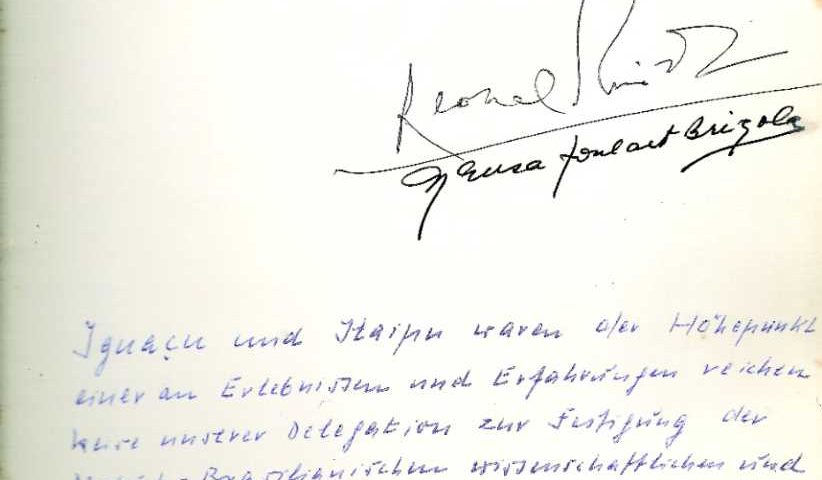 Leonel Brizola
Neusa Goulart Brizola
Iguaçu und Itaipu waren der Höhepunkt
einer an Erlebnissen und Erfahrungen reichen
Reise unserer Delegation zur Festigung der
Brasilianischen wissenschaftlichen und